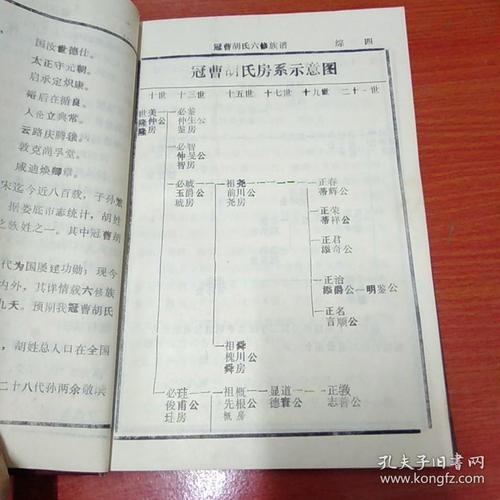 国汝世德仕。
太正守元朝。
启承定炽康。
裕后在循良。
人企立典常。
云路庆腾骧。
敦克尚孚堂。
咸迪焕卿章。
宋迄今近八百载，于孙繁
据娄底市志统计，胡姓
之族姓之一。其中冠曹胡
代为国屡建功勋；现今
内外，其详情载六修族
九天。预期我冠曹胡氏
，胡姓总人口在全国
二十八代孙两余敬撰
冠曹胡氏六修族谱 综 四
冠曹胡氏房系示意图
十世 十三世 十五世 十七世 十九世 二十一世
世美公 必鉴
隆仲 仲生公
隆房 鉴房
必智
仲旻公
智房
必城 祖尧 正春
玉爵公 前川公 蕃辉公
城房 尧房
正荣
蕃祥公
正君
添奇公
正治
添爵公—明鉴公
正名
言顺公
祖舜
槐川公
舜房
必珪 祖概 显道 正敦
俊甫公 先根公 德寰公 志善公
珪房 概房
孔夫子旧书网
www.kongfz.com